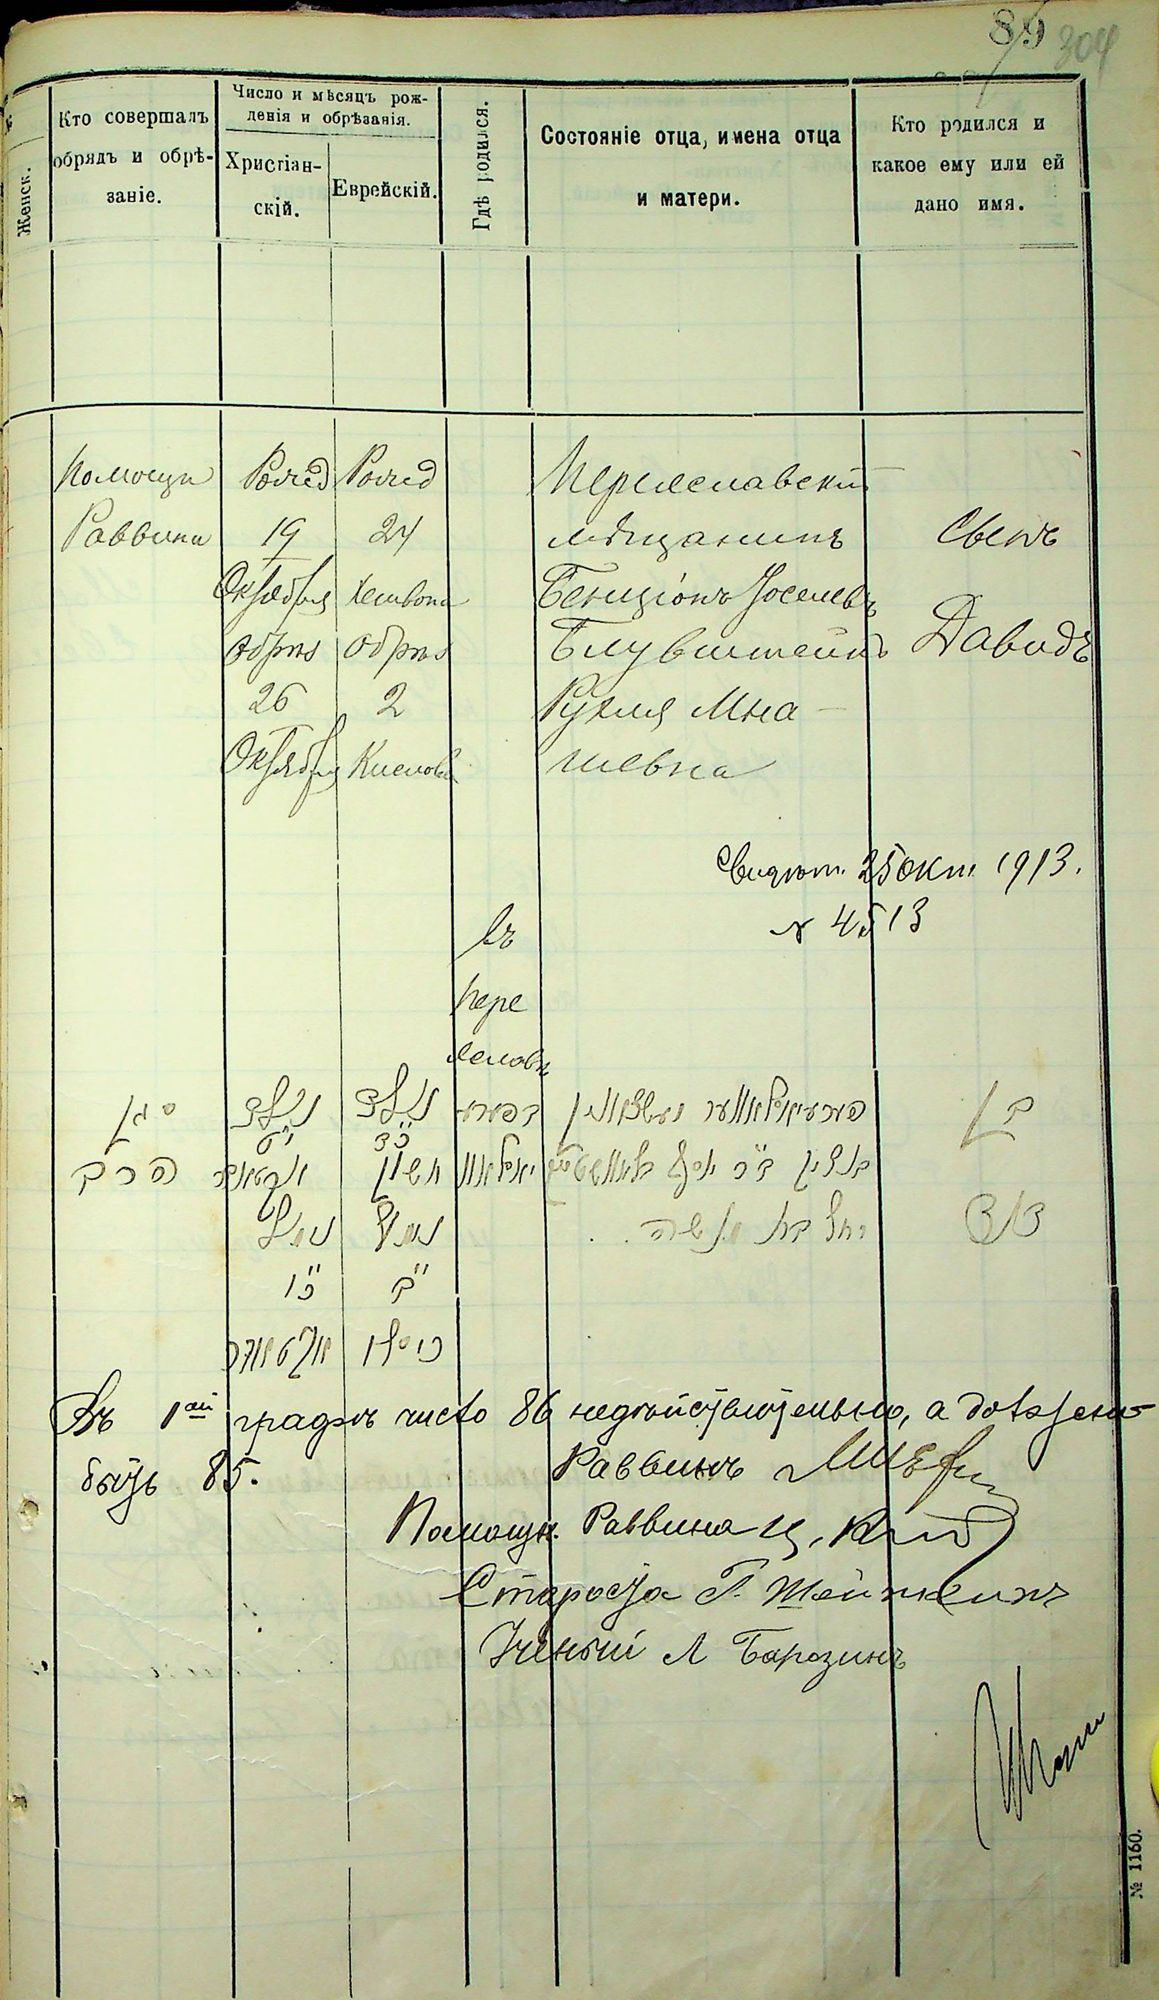 85 304
Женск.
Кто совершалъ
обрядъ и обрѣ-
заніе.
Число и мѣсяцъ рож-
денія и обрѣзанія.
Христіан-
скій.
Еврейскій.
Гдѣ родился.
Состояніе отца, имена отца
и матери.
Кто родился и
какое ему или ей
дано имя.
Помощн
Раввина
Рожд
19
Октября
обрѣз
26
Октября
Рожд
24
Хешвона
обрѣз
2
Кислова
въ
Пере
яславѣ
Переяславскій
мѣщанинъ
Бенціонъ Іоселевъ
Блувштейнъ
Рухля Мна-
шевна
Сынъ
Давидъ
Свидѣт. 25 Окт. 1913.
№ 4513
סגן
הרב
נולד
י״ט
אקטאבר
נימול
כ״ו
אקטאבר
נולד
כ״ד
חשון
נימול
ב״
כיסלו
בן
דוד
רחל בת מנשה
Въ 1ай графѣ число 86 недѣйствительно, а должно
быть 85.
Раввинъ
Помощн. Раввина Ц.
Староста Г. Шейнкинъ
Ученый Л Барозинъ
№ 1160.